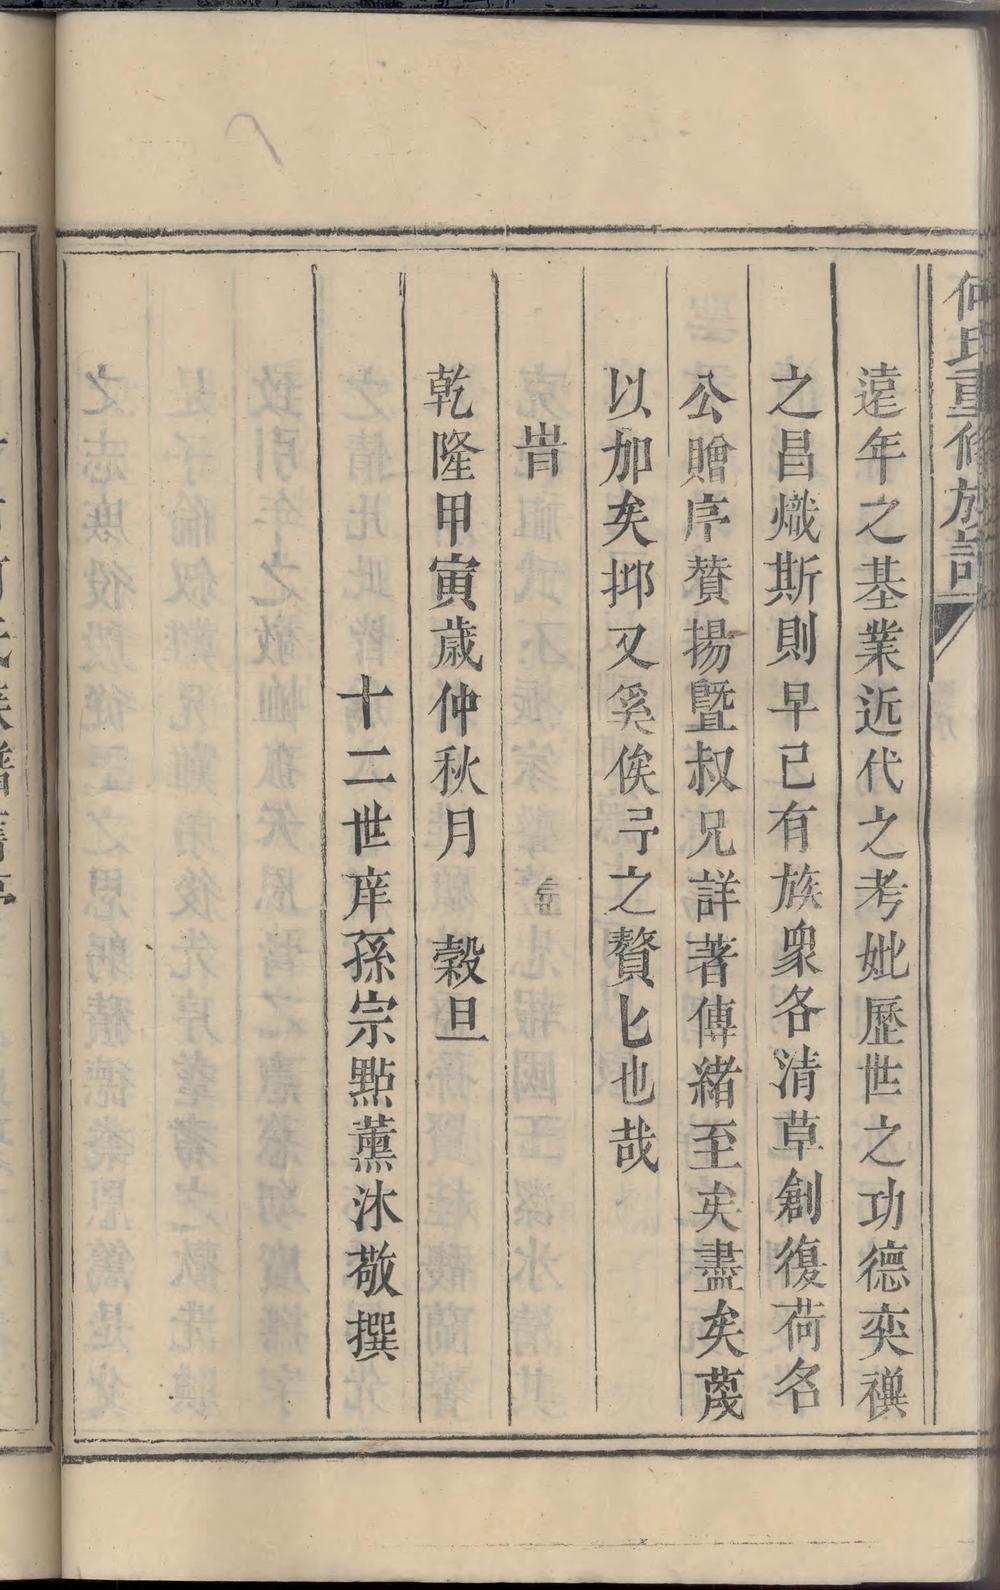 何氏重修族譜
遠年之基業近代之考妣歷世之功德奕禩
之昌熾斯則早已有族衆各清草創復荷名
公贈序賛揚曁叔兄詳著傳緒至矣盡矣蔑
以加矣抑又奚俟予之贅匕也哉
旹
乾隆甲寅歲仲秋月 穀旦
十二世庠孫宗點薰沐敬撰